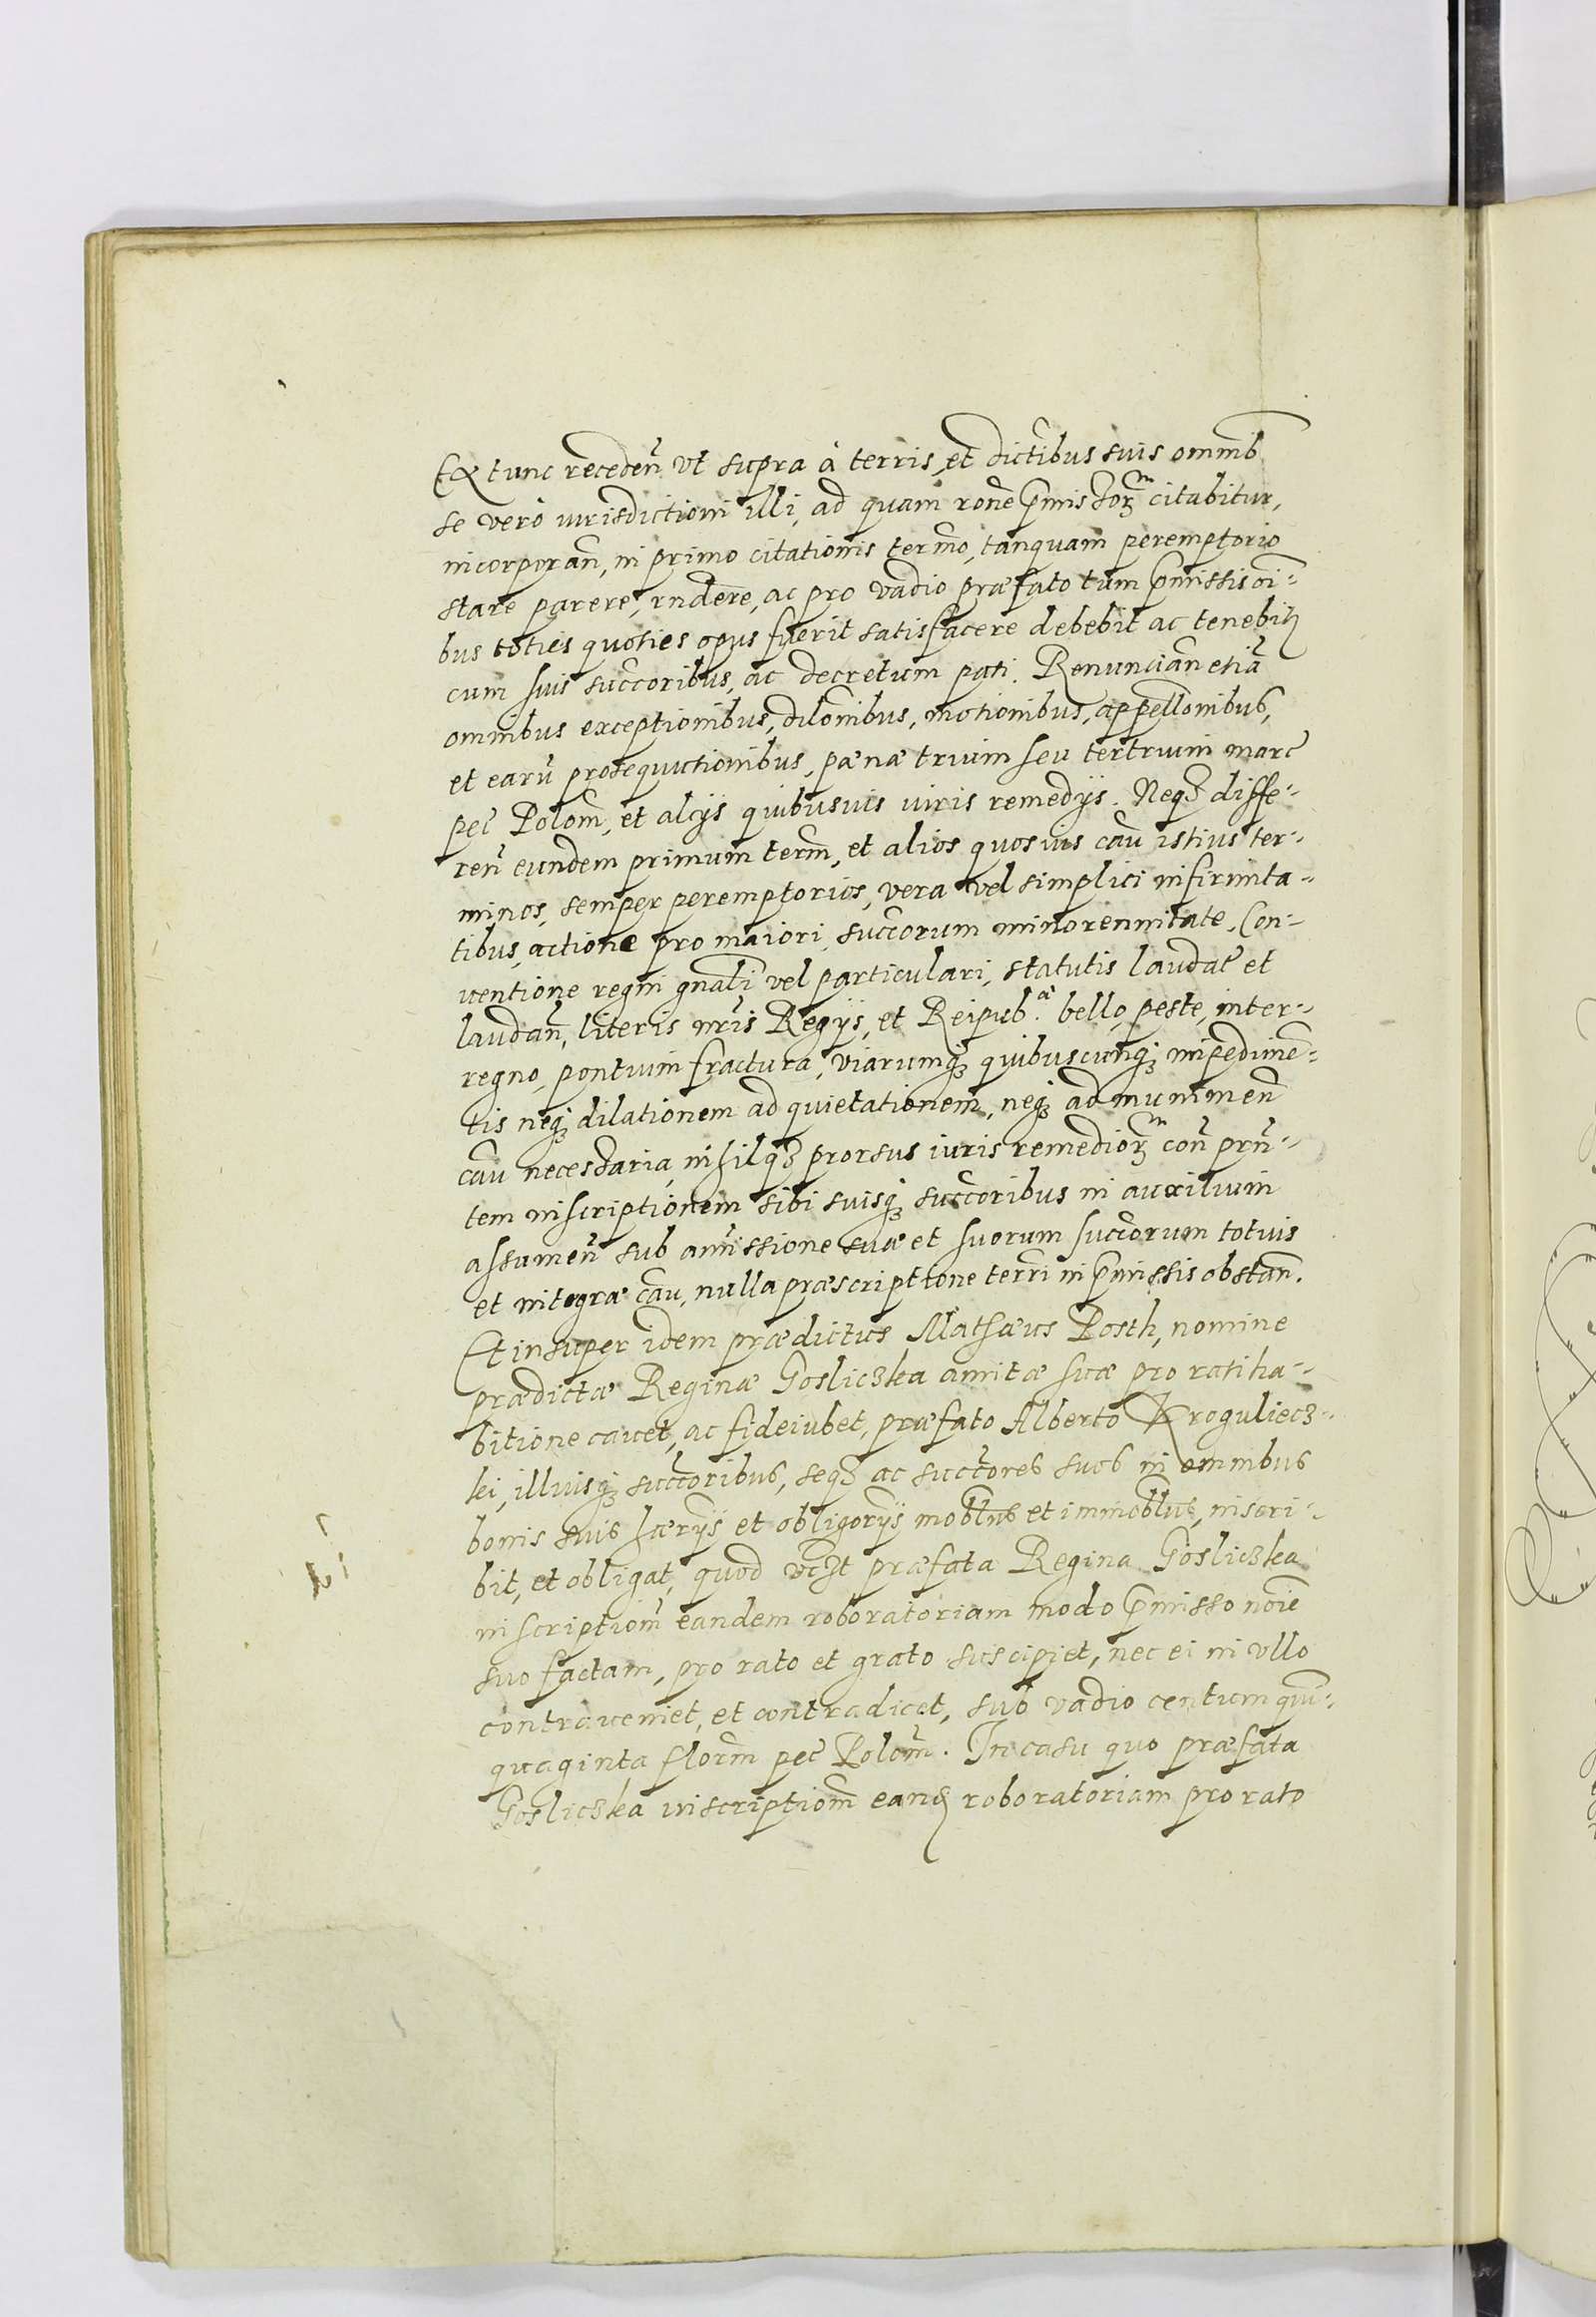 Ex tunc receden̄ vt supra à terris, et dictībus suis omnīb
se verò iurisdictioni illi, ad quam ronē p̄missorꝝᵐ citabitur,
incorporan̄, in primo citationis termō, tanquam peremptorio
stare parere, rndēre, ac pro vadio præfato tum p̄missis oī-
bus toties quoties opus fuerit satisfacere debebit ac tenebitꝭ
cum suis succōribus, ac decretum pati. Renuncian̄ etiā
omnibus exceptionibus, dilōnibus, motionibus, appellōnibus,
et earū prosequutionibus, pænæ trium seu tertrium marc̄
pec̄ Polom̄, et alijs quibusuis iuris remedijs. Neqꝫ diffe-
ren̄ eundem primum term̄, et alios quosuis caū istius ter-
minos, semper peremptorios, vera vel simplici infirmita-
tibus, actione pro maiori, succōrum minorennitate, Con-
uentione regni gnāli vel particulari, statutis laudat̄ et
laudan̄, literis nrīs Regijs, et Reipub.ᵃᵉ bello, peste, inter-
regno, pontium fractura, viarumqꝫ quibuscunqꝫ impedimē-
tis neqꝫ dilationem ad quietationem, neqꝫ ad munimen̄
caū necessaria, nihilqꝫ prorsus iuris remediorꝝᵐ con̄ prn̄-
tem inscriptionem sibi suisqꝫ succōribus in auxilium
assumen̄ sub amīssione suæ et suorum succōrum totius
et integræ caū, nulla præscriptione terrī in p̄missis obstan̄.
Et insuper idem prædictus Mathæus Posth, nomine
prædictæ Reginæ Gosliczka amitæ suæ pro ratiha-
bitione cauet, ac fideiubet, præfato Alberto Kroguliecz-
kei, illiusqꝫ succōribus, seqꝫ ac succtōres suos in omnibus
bonis suis hæerijs et obligorijs mobbl̄us et immobbl̄us, inscri-
bit, et obligat, quod vcꝫt præfata Regina Gosliczka
inscriptiōm eandem roboratoriam modo p̄misso noīe
suo factam, pro rato et grato suscipiet, nec ei in vllo
contraueniet, et contradicet, sub vadio centum quī-
quaginta florm̄ pec̄ Polom̄. In casu quo præfata
Gosliczka inscriptiom̄ eanꝭ roboratoriam pro rato